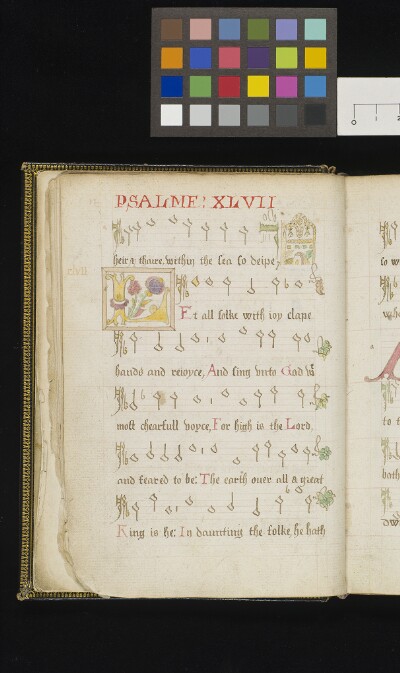 PSALME: XLVII
heir a thare, within the sea so deipe,
xlvii
Et all folke with ioy clape
hands and reioyce, And sing vnto God wt
most chearfull voyce, For high is the Lord,
and feared to be: The earth ouer all a great
King is he: In daunting the folke, he hath
0 1 2
so w
to t
bath